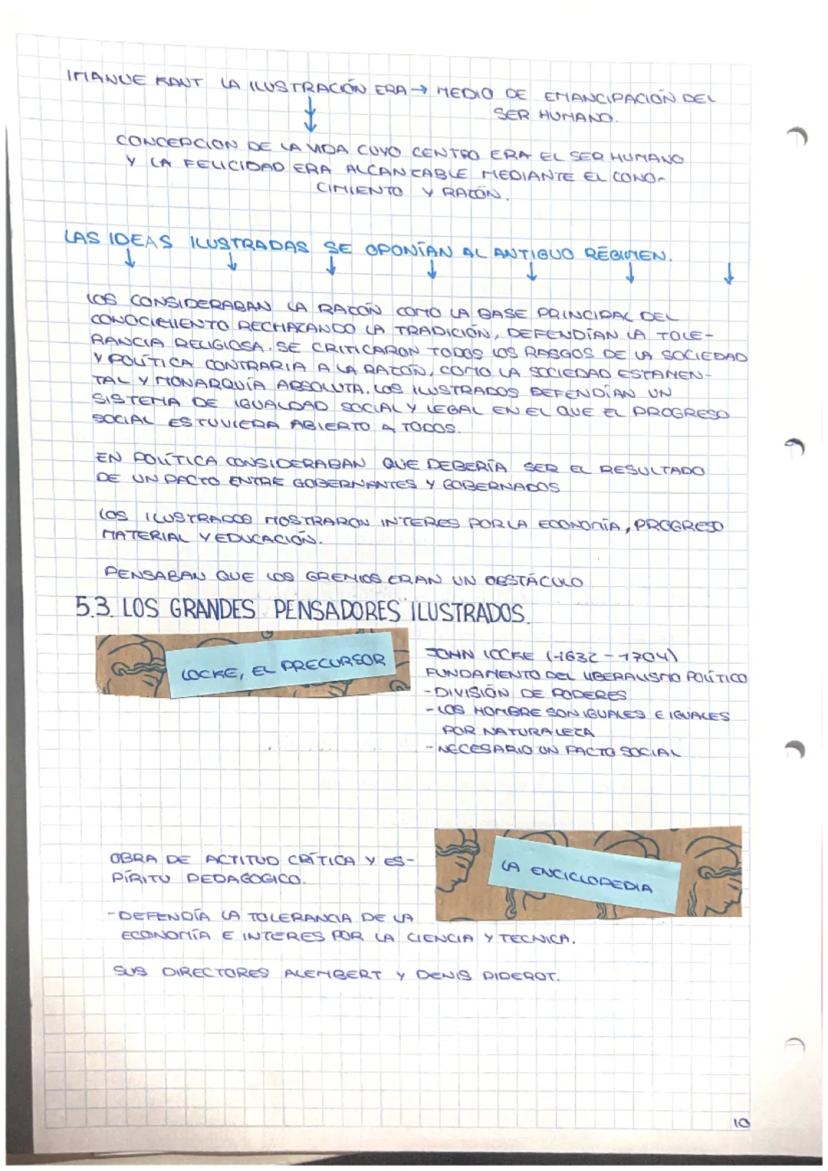 IMANUE KANT LA ILUSTRACIÓN ERA → MEDIO DE EMANCIPACIÓN DEL
SER HUMANO.
CONCEPCION DE LA VIDA CUYO CENTRO ERA EL SER HUMANO
Y LA FELICIDAD ERA ALCANZABLE MEDIANTE EL CONO-
CIMIENTO Y RAZÓN.
LAS IDEAS ILUSTRADAS SE OPONÍAN AL ANTIGUO RÉGIMEN.
LOS CONSIDERABAN LA RAZÓN COMO LA BASE PRINCIPAL DEL
CONOCIMIENTO RECHAZANDO LA TRADICIÓN, DEFENDÍAN LA TOLE-
RANCIA RELIGIOSA. SE CRITICARON TODOS LOS RASGOS DE LA SOCIEDAD
Y POLÍTICA CONTRARIA A LA RAZÓN, COMO LA SOCIEDAD ESTAMEN-
TAL Y MONARQUÍA ABSOLUTA. LOS ILUSTRADOS DEFENDÍAN UN
SISTEMA DE IGUALDAD SOCIAL Y LEGAL EN EL QUE EL PROGRESO
SOCIAL ESTUVIERA ABIERTO A TODOS.
EN POLÍTICA CONSIDERABAN QUE DEBERÍA SER EL RESULTADO
DE UN PACTO ENTRE GOBERNANTES Y GOBERNADOS
LOS ILUSTRADOS MOSTRARON INTERES POR LA ECONOMÍA, PROGRESO
MATERIAL Y EDUCACIÓN.
PENSABAN QUE LOS GREMIOS ERAN UN OBSTÁCULO
5.3. LOS GRANDES PENSADORES ILUSTRADOS.
LOCKE, EL PRECURSOR
JOHN LOCKE (-1632 - 1704)
FUNDAMENTO DEL LIBERALISMO POLÍTICO
-DIVISIÓN DE PODERES
-LOS HOMBRE SON IGUALES E IGUALES
POR NATURALEZA
-NECESARIO UN PACTO SOCIAL
OBRA DE ACTITUD CRÍTICA Y ES-
PÍRITU PEDAGOGICO.
LA ENCICLOPEDIA
-DEFENDÍA LA TOLERANCIA DE LA
ECONOMÍA E INTERES POR LA CIENCIA Y TECNICA.
SUS DIRECTORES ALEMBERT Y DENIS DIDEROT.
10